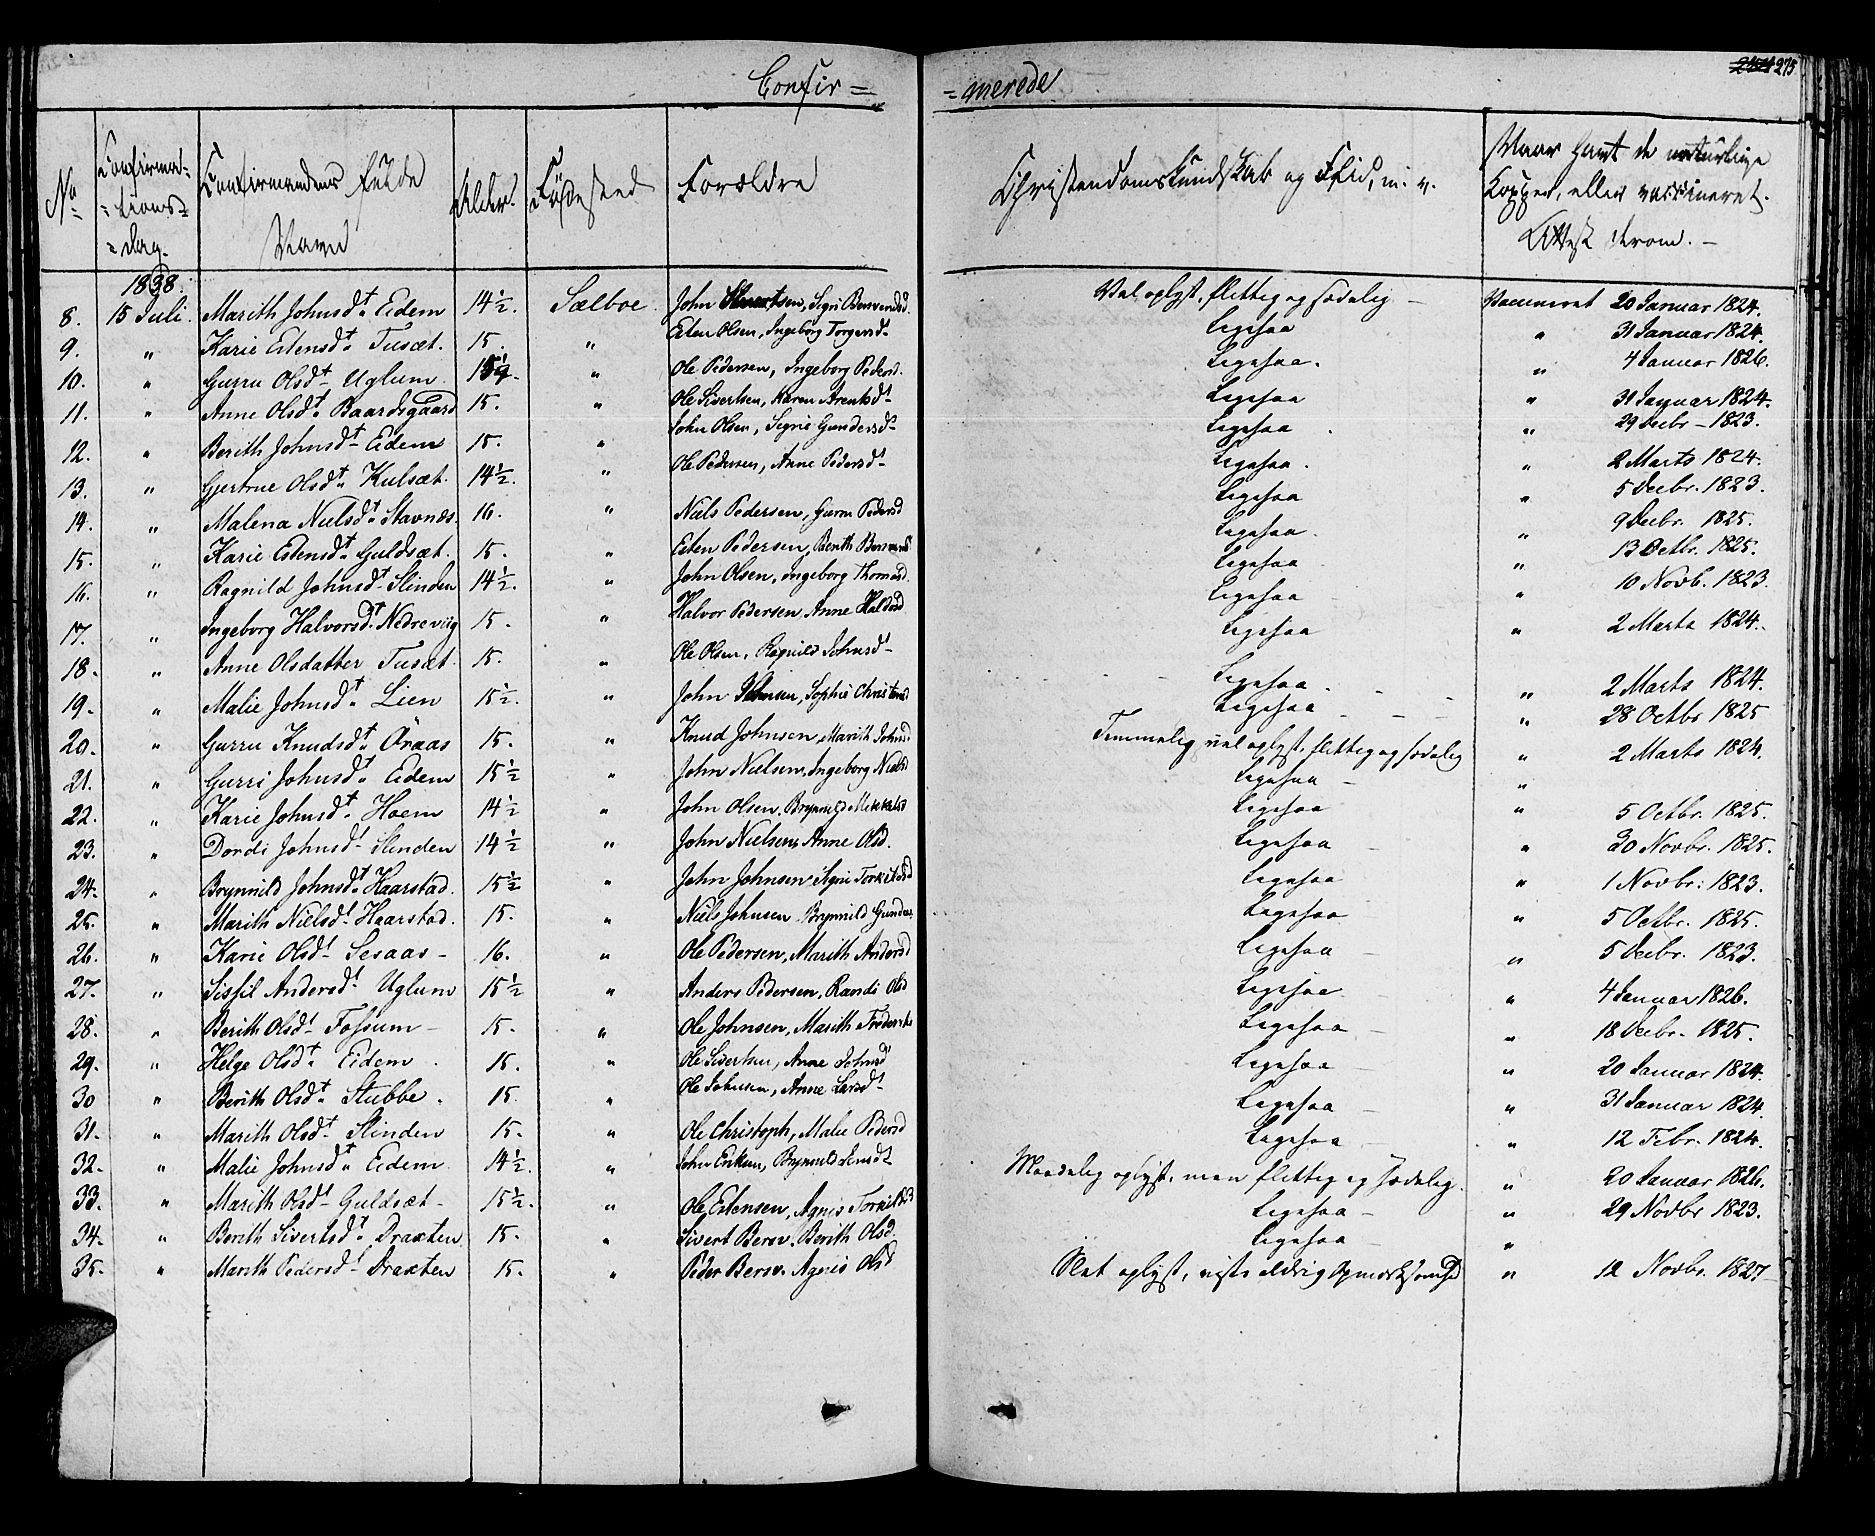 Confir=
=merede
275
No
Confirma-
=tions=
=dag.
Confirmandens fulde
Navn
Alder.
Fødested
Forældre
Christendomskundskab og Flid, m. v.
Naar havt de naturlige
Kopper, eller vaccineret.
Attest derom. –
1838.
8. 15 Juli. Marith Johnsdt. Eidem 14½. Sælboe. John Sivertsen, Sigri Bersvendsd. Vel oplyst, flittig og sædelig – Vaccineret 20 Januar 1824.
9. " Karie Estensdt. Tusæt. 15. " Esten Olsen, Ingeborg Torgersdt. Ligesaa " 31 Januar 1824.
10. " Gurru Olsdt. Uglum " Ole Pedersen, Ingeborg Pedersd. Ligesaa. " 4 Januar 1826.
11. " Anne Olsdt. Baardsgaard 15. " Ole Sivertsen, Karen Arentsdt. Ligesaa " 31 Januar 1824.
12. " Berith Johnsdt. Eidem 15. " John Olsen, Sigrie Gundersdt. Ligesaa " 29 Decbr – 1823.
13. " Gjertrue Olsdt. Kulsæt. 14½. " Ole Pedersen, Anne Pedersdt. Ligesaa. " 2 Marts 1824.
14. " Malena Nielsdt. Stavnæs. 16. " Niels Pedersen, Gurru Pedersd Ligesaa " 5 Decbr. 1823.
15. " Karie Estensdt. Guldsæt. 15. " Esten Pedersen, Berith Bersvends Ligesaa. " 9 Decbr. 1825.
16. " Ragnild Johnsdt. Slinden 14½. " John Olsen, Ingeborg Thomasd. Ligesaa " 13 Octbr. 1825.
17. " Ingeborg Halvorsdt. Nedreviig 15. " Halvor Pedersen, Anne Haldosd Ligesaa " 10 Novb. 1823.
18. " Anne Olsdatter Tusæt. 15. " Ole Olsen, Ragnild Johnsdt. Ligesaa " 2 Marts 1824.
19. " Malie Johnsdt. Lien 15½. " John Johnsen, Sophie Christensd Ligesaa. " 2 Marts 1824.
20. " Gurru Knudsdt. Øraas 15. " Knud Johnsen, Marith Johnsd Ligesaa " 28 Octbr 1825
21. " Gurri Johnsdt. Eidem 15½ " John Nielsen, Ingeborg Nielsd Temmelig vel oplyst, flittig og sædelig " 2 Marts 1824.
22. " Karie Johnsdt. Hoem 14½ " John Olsen, Brynnild Mikkelsd Ligesaa – " 5 Octbr. 1825.
23. " Dordi Johnsdt. Slinden 14½ " John Nielsen, Anne Olsd. Ligesaa " 30 Novbr. 1825.
24. " Brynnild Johnsdt. Haarstad. 15½ " John Johnsen, Sigri Torkilsd Ligesaa – " 1 Novbr: 1823.
25. " Marith Nielsdt. Haarstad. 15. " Niels Johnsen, Brynnild Gunders Ligesaa " 5 Octbr. 1825.
26. " Karie Olsdt. Sesaas – 16. " Ole Pedersen, Marith Andersd Ligesaa " 5 Decbr. 1823.
27. " Sissil Andersdt. Uglum 15½ " Anders Pedersen, Randi Olsd Ligesaa – " 4 Januar 1826.
28. " Berith Olsdt. Fossum – 15. " Ole Johnsen, Marith Frederiks Ligesaa " 18 Decbr. 1825.
29. " Helge Olsdt. Eidem 15. " Ole Sivertsen, Anne Johnsd Ligesaa – " 20 Januar 1824.
30 " Berith Olsdt. Stubbe. 15. " Ole Johnsen, Anne Larsdt. Ligesaa – " 31 Januar 1824.
31. " Marith Olsdt. Slinden 15. " Ole Christoph, Malie Pedersd Ligesaa – " 12 Febr. 1824.
32. " Malie Johnsdt. Eidem 14½. " John Eriksen, Brynnild Jensdt Maadelig oplyst, men flittig og sædelig. " 20 Januar 1826.
33. " Marith Olsdt. Guldsæt – 15½. " Ole Estensen, Agnis Torkildsd Ligesaa – " 29 Novbr 1823.
34. " Berith Sivertsdt. Draxten 15. " Sivert Bersv. Berith Olsd. Ligesaa – "
35. " Marith Pedersdt. Draxten 15. " Peder Bersv. Agnis Olsd Slet oplyst, viste aldrig Opmærksomhed " 12 Novbr. 1827